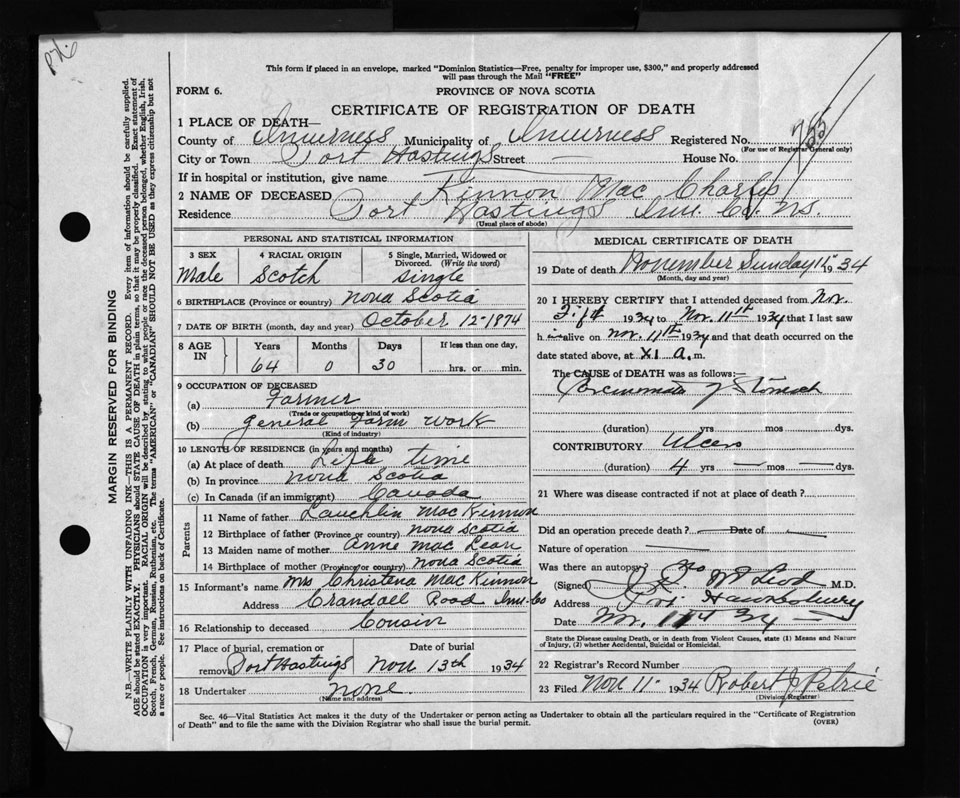 This form if placed in an envelope, marked "Dominion Statistics—Free, penalty for improper use, $300," and properly addressed
will pass through the Mail "FREE"
FORM 6.
PROVINCE OF NOVA SCOTIA
CERTIFICATE OF REGISTRATION OF DEATH
1 PLACE OF DEATH—
County of Inverness Municipality of Inverness Registered No.
(For use of Registrar General only)
City or Town Port Hastings Street — House No.
If in hospital or institution, give name
2 NAME OF DECEASED Kinnon Mac Charles
Residence Port Hastings Inv. Co. NS.
(Usual place of abode)
PERSONAL AND STATISTICAL INFORMATION
3 SEX Male
4 RACIAL ORIGIN Scotch
5 Single, Married, Widowed or Divorced. (Write the word) single
6 BIRTHPLACE (Province or country) Nova Scotia
7 DATE OF BIRTH (month, day and year) October 12-1874
8 AGE IN Years 64 Months 0 Days 30 If less than one day, hrs. or min.
9 OCCUPATION OF DECEASED
(a) Farmer
(Trade or occupation or kind of work)
(b) general Farm work
(Kind of industry)
10 LENGTH OF RESIDENCE (in years and months)
(a) At place of death Life time
(b) In province Nova Scotia
(c) In Canada (if an immigrant) Canada
Parents
11 Name of father Lauchlin Mac Kinnon
12 Birthplace of father (Province or country) Nova Scotia
13 Maiden name of mother Anne Mac Lean
14 Birthplace of mother (Province or country) Nova Scotia
15 Informant's name Mrs Christena Mac Kinnon
Address Crandall Road Inv. Co
16 Relationship to deceased Cousin
17 Place of burial, cremation or removal Port Hastings Date of burial Nov 13th 1934
18 Undertaker none.
(Name and address)
MEDICAL CERTIFICATE OF DEATH
19 Date of death November Sunday 11 1934
(Month, day and year)
20 I HEREBY CERTIFY that I attended deceased from Nov.
1934 to Nov. 11th 1934 that I last saw
h im alive on Nov. 11th 1934 and that death occurred on the
date stated above, at XI a. m.
The CAUSE of DEATH was as follows:—
Carcinomata of Stomach
(duration) yrs — mos — dys.
CONTRIBUTORY Ulcers
(duration) 4 yrs — mos — dys.
21 Where was disease contracted if not at place of death?
Did an operation precede death? — Date of —
Nature of operation —
Was there an autopsy? No
(Signed) McLeod M.D.
Address Pt. Hawkesbury
Date Nov. 11th 34
State the Disease causing Death, or in death from Violent Causes, state (1) Means and Nature
of Injury, (2) whether Accidental, Suicidal or Homicidal.
22 Registrar's Record Number
23 Filed Nov 11- 1934 Robert J Petrie
(Division Registrar)
Sec. 46—Vital Statistics Act makes it the duty of the Undertaker or person acting as Undertaker to obtain all the particulars required in the "Certificate of Registration
of Death" and to file the same with the Division Registrar who shall issue the burial permit.
(OVER)
MARGIN RESERVED FOR BINDING
N.B.—WRITE PLAINLY WITH UNFADING INK—THIS IS A PERMANENT RECORD. Every item of information should be carefully supplied.
AGE should be stated EXACTLY. PHYSICIANS should STATE CAUSE OF DEATH in plain terms, so that it may be properly classified. Exact statement of
OCCUPATION is very important. RACIAL ORIGIN will be described by stating to what people or race the deceased person belonged, whether English, Irish,
Scotch, French, German, Russian, Ruthenian, etc. The terms "AMERICAN" or "CANADIAN" SHOULD NOT BE USED as they express citizenship but not
a race or people. See instructions on back of Certificate.